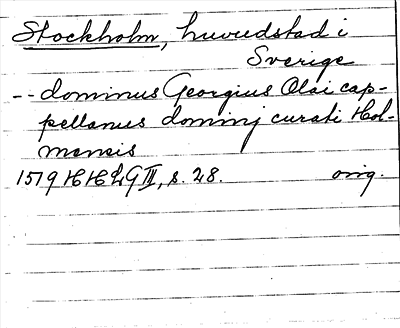 Stockholm, huvudstad i
Sverige
-- dominus Georgius Olai cap-
pellanus dominj curati Hol-
mensis
1519 HH LG III, s. 28. orig.